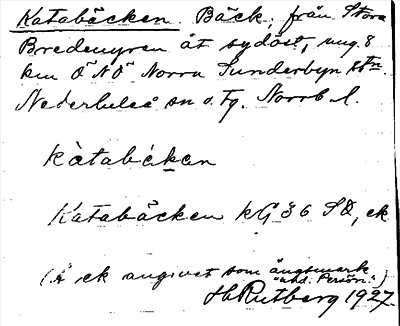 Katabäcken. Bäck, från Stora
Bredemyren åt sydöst, ung. 8
km ÖNÖ Norra Sunderbyn stn.
Nederluleå sn o. tg. Norrb. l.
kàtabäkan
Katabäcken kG 36 SO, ek
(Å ek angivet som ängsmark
"uhd. Persön.")
H Rutberg 1927.